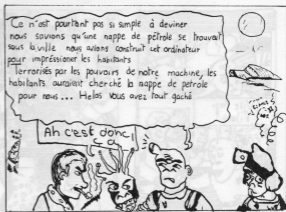 Ce n'est pourtant pas si simple à deviner
nous savions qu'une nappe de pétrole se trouvait
sous la ville nous avions construit cet ordinateur
pour impressionner les habitants
Terrorisés par les pouvoirs de notre machine, les
habitants auraient cherché la nappe de petrole
pour nous... Helas vous avez tout gaché
Ah c'est donc
ça